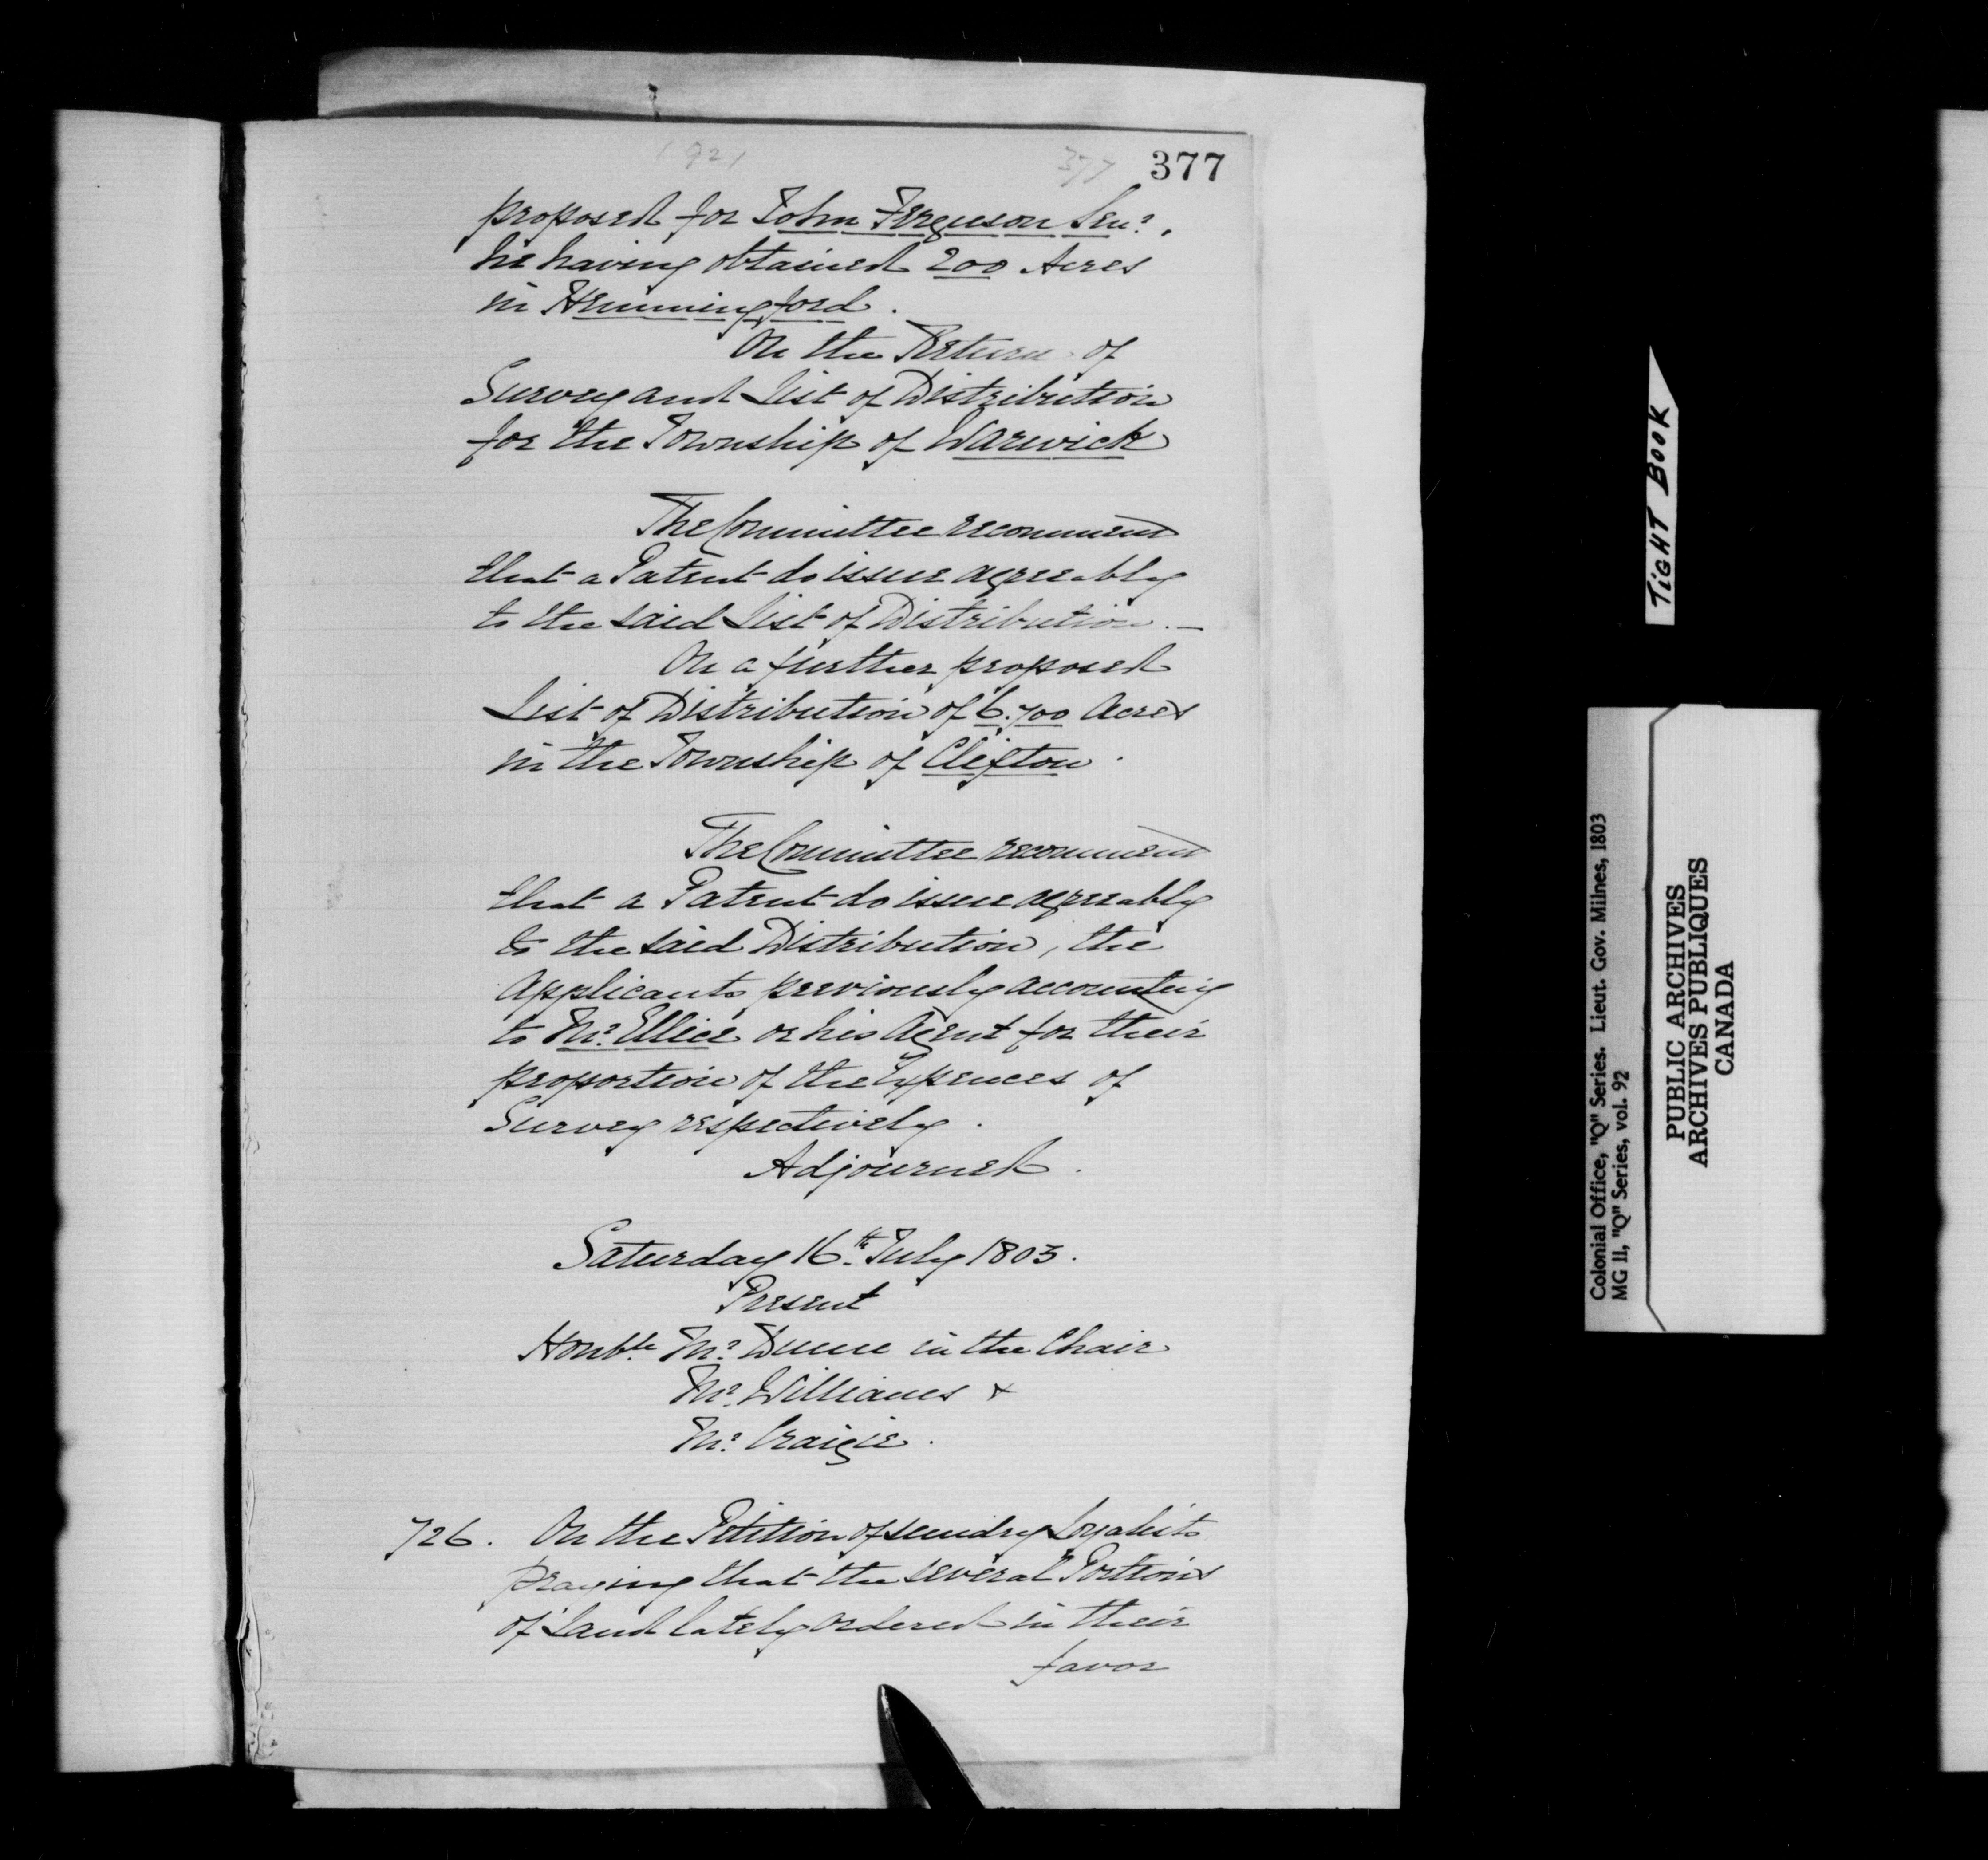 377
proposed for John Ferguson Senr.,
he having obtained 200 Acres
in Hemmingford.
On the Return of
Survey and List of Distribution
for the Township of Warwick
The Committee recommend
that a Patent do issue agreeably
to the said List of Distribution.—
On a further proposed
List of Distribution of 6.700 Acres
in the Township of Clifton.
The Committee recommend
that a Patent do issue agreeably
to the said Distribution, the
Applicants previously accounting
to Mr. Ellice or his Agent for their
proportion of the Expences of
Survey respectively.
Adjourned.
Saturday 16th. July 1803.
Present
Honble. Mr. Dunn in the Chair
Mr. Williams &
Mr. Craigie.
726. On the Petition of sundry Loyalists
praying that the several Portions
of Land lately ordered in their
favor
TIGHT BOOK
Colonial Office, "Q" Series. Lieut. Gov. Milnes, 1803
MG 11, "Q" Series, vol. 92
PUBLIC ARCHIVES
ARCHIVES PUBLIQUES
CANADA